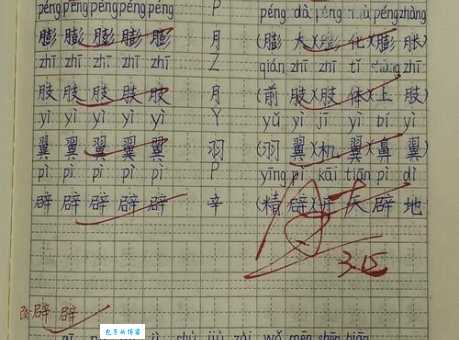 péng péng péng péng péng P péng dà péng péng zhàng
膨 膨 膨 膨 膨 月 (膨 大)(膨 化)(膨 胀)
zhī zhī zhī zhī zhī Z qián zhī zhī tǐ zhī
肢 肢 肢 肢 肢 月 (前 肢)(肢 体)(上 肢)
yì yì yì yì yì Y yǔ yì jī yì bí yì
翼 翼 翼 翼 翼 羽 (羽 翼)(机 翼)(鼻 翼)
pì pì pì pì pì P yīng pì kāi tiān pì dì
辟 辟 辟 辟 辟 辛 (精 辟)(开 天 辟 地
3.15
辟 辟
包子的博客
wǒ mēn shēn biān